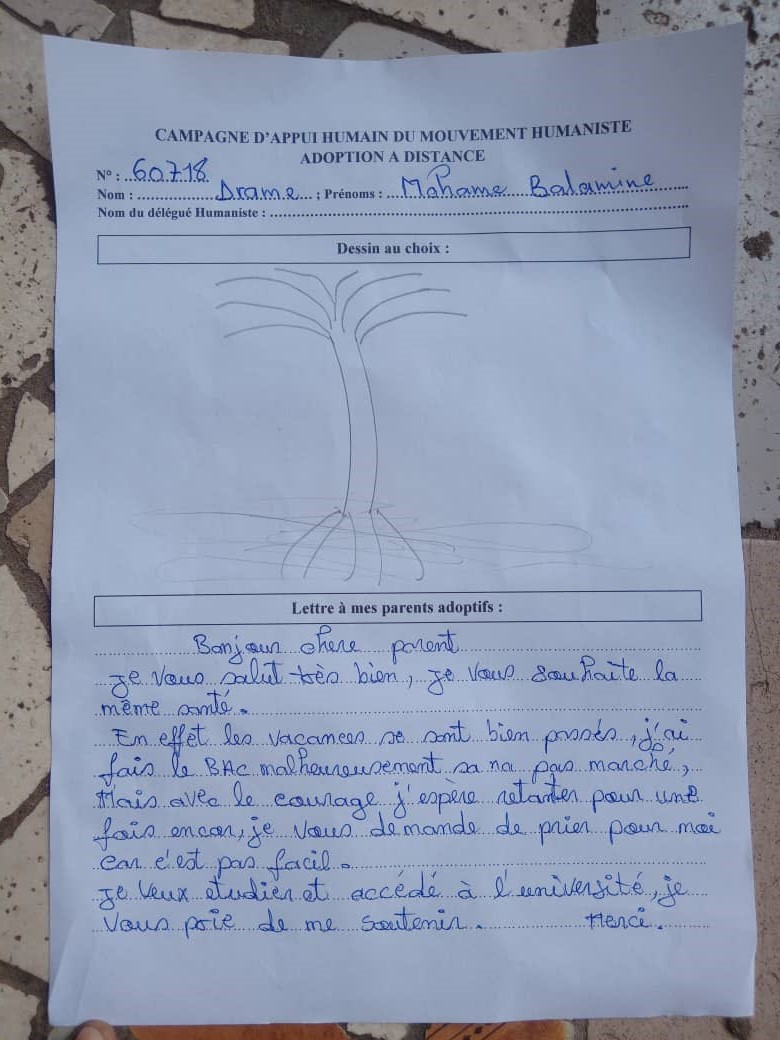 CAMPAGNE D'APPUI HUMAIN DU MOUVEMENT HUMANISTE
ADOPTION A DISTANCE
N° : 60718
Nom : Drame ; Prénoms : Mahame Balamine
Nom du délégué Humaniste :
Dessin au choix :
Lettre à mes parents adoptifs :
Bonjour chere parent
je vous salut très bien, je vous souhaite la
même santé.
En effet les vacances se sont bien passés, j'ai
fais le BAC malheureusement sa na pas marché,
Mais avec le courage j'espère retanter pour une
fois encor, je vous demande de prier pour moi
car c'est pas facil.
je veux étudier et accédé à l'université, je
vous prie de me soutenir. Merci.